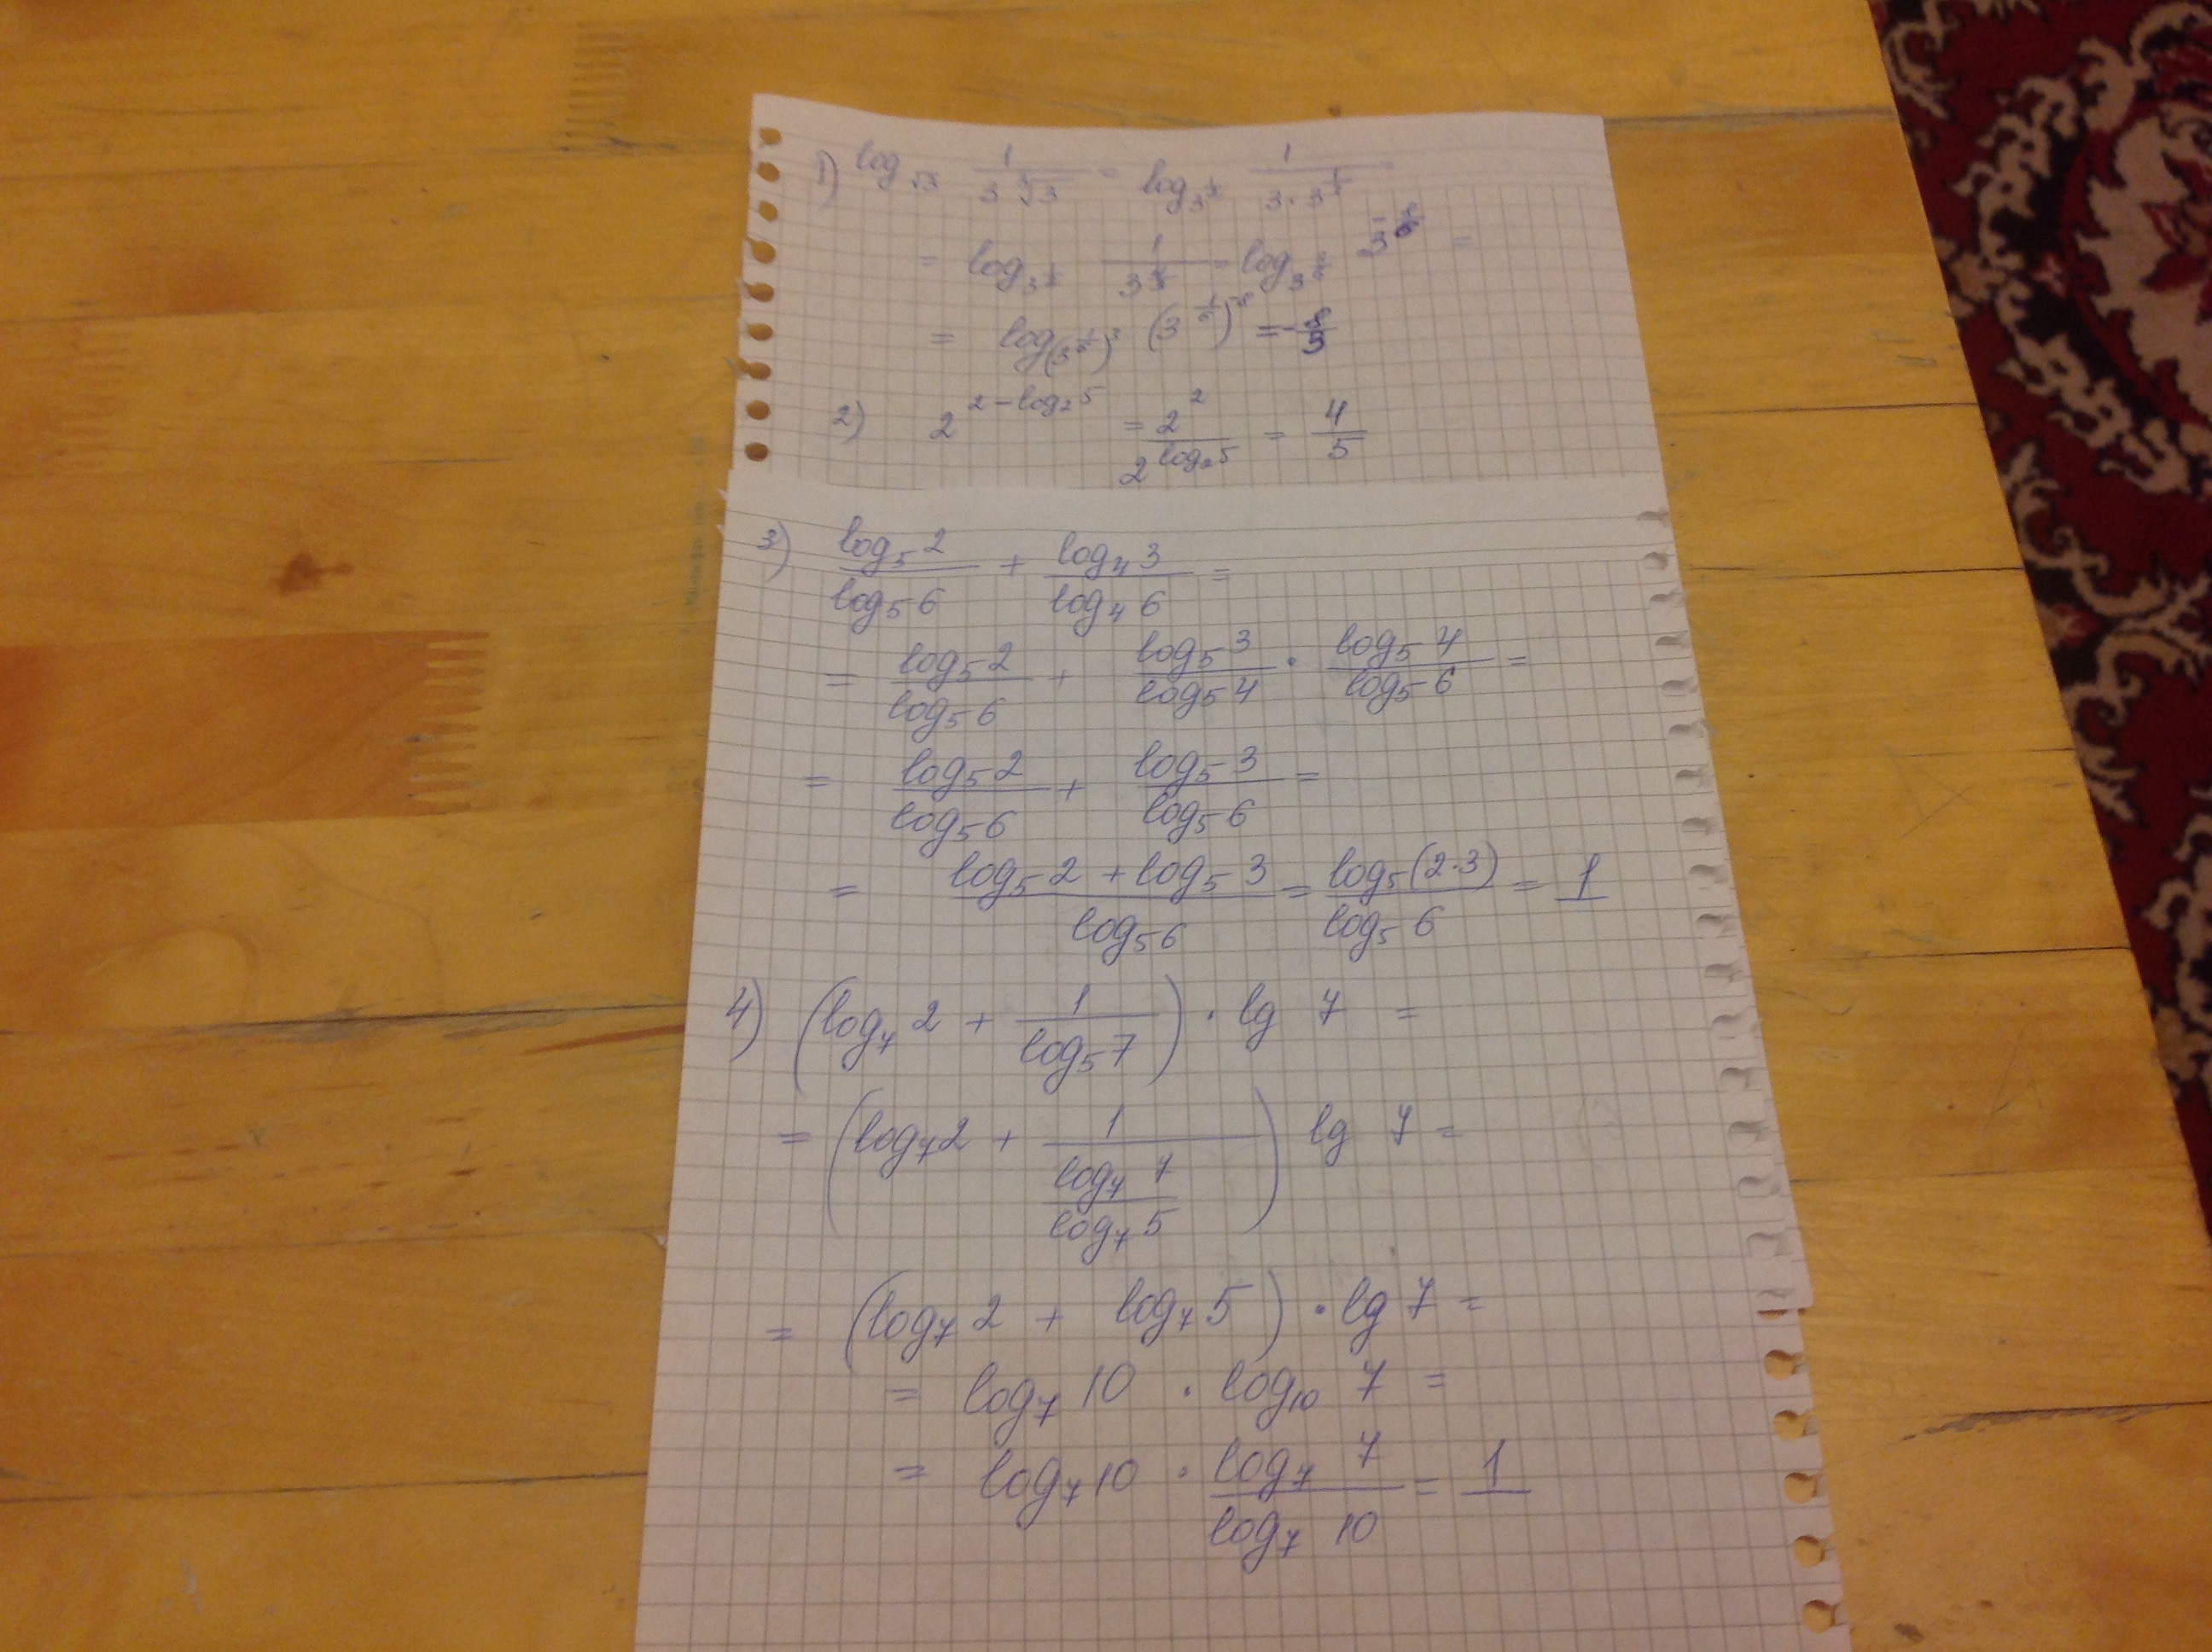 1) log_√3 1/(3∛3) = log_3^(1/2) 1/(3·3^(1/3)) =
= log_3^(1/2) 1/3^(4/3) = log_3^(3/6) 3^(-8/6) =
= log_(3^(1/6))^3 (3^(1/6))^-8 = -8/3
2) 2^(2-log₂5) = 2^2/2^(log₂5) = 4/5
3) log₅2/log₅6 + log₄3/log₄6 =
= log₅2/log₅6 + log₅3/log₅4 · log₅4/log₅6 =
= log₅2/log₅6 + log₅3/log₅6 =
= (log₅2 + log₅3)/log₅6 = log₅(2·3)/log₅6 = 1
4) (log₇2 + 1/log₅7) · lg 7 =
= (log₇2 + 1/(log₇7/log₇5)) lg 7 =
= (log₇2 + log₇5) · lg 7 =
= log₇10 · log₁₀7 =
= log₇10 · log₇7/log₇10 = 1